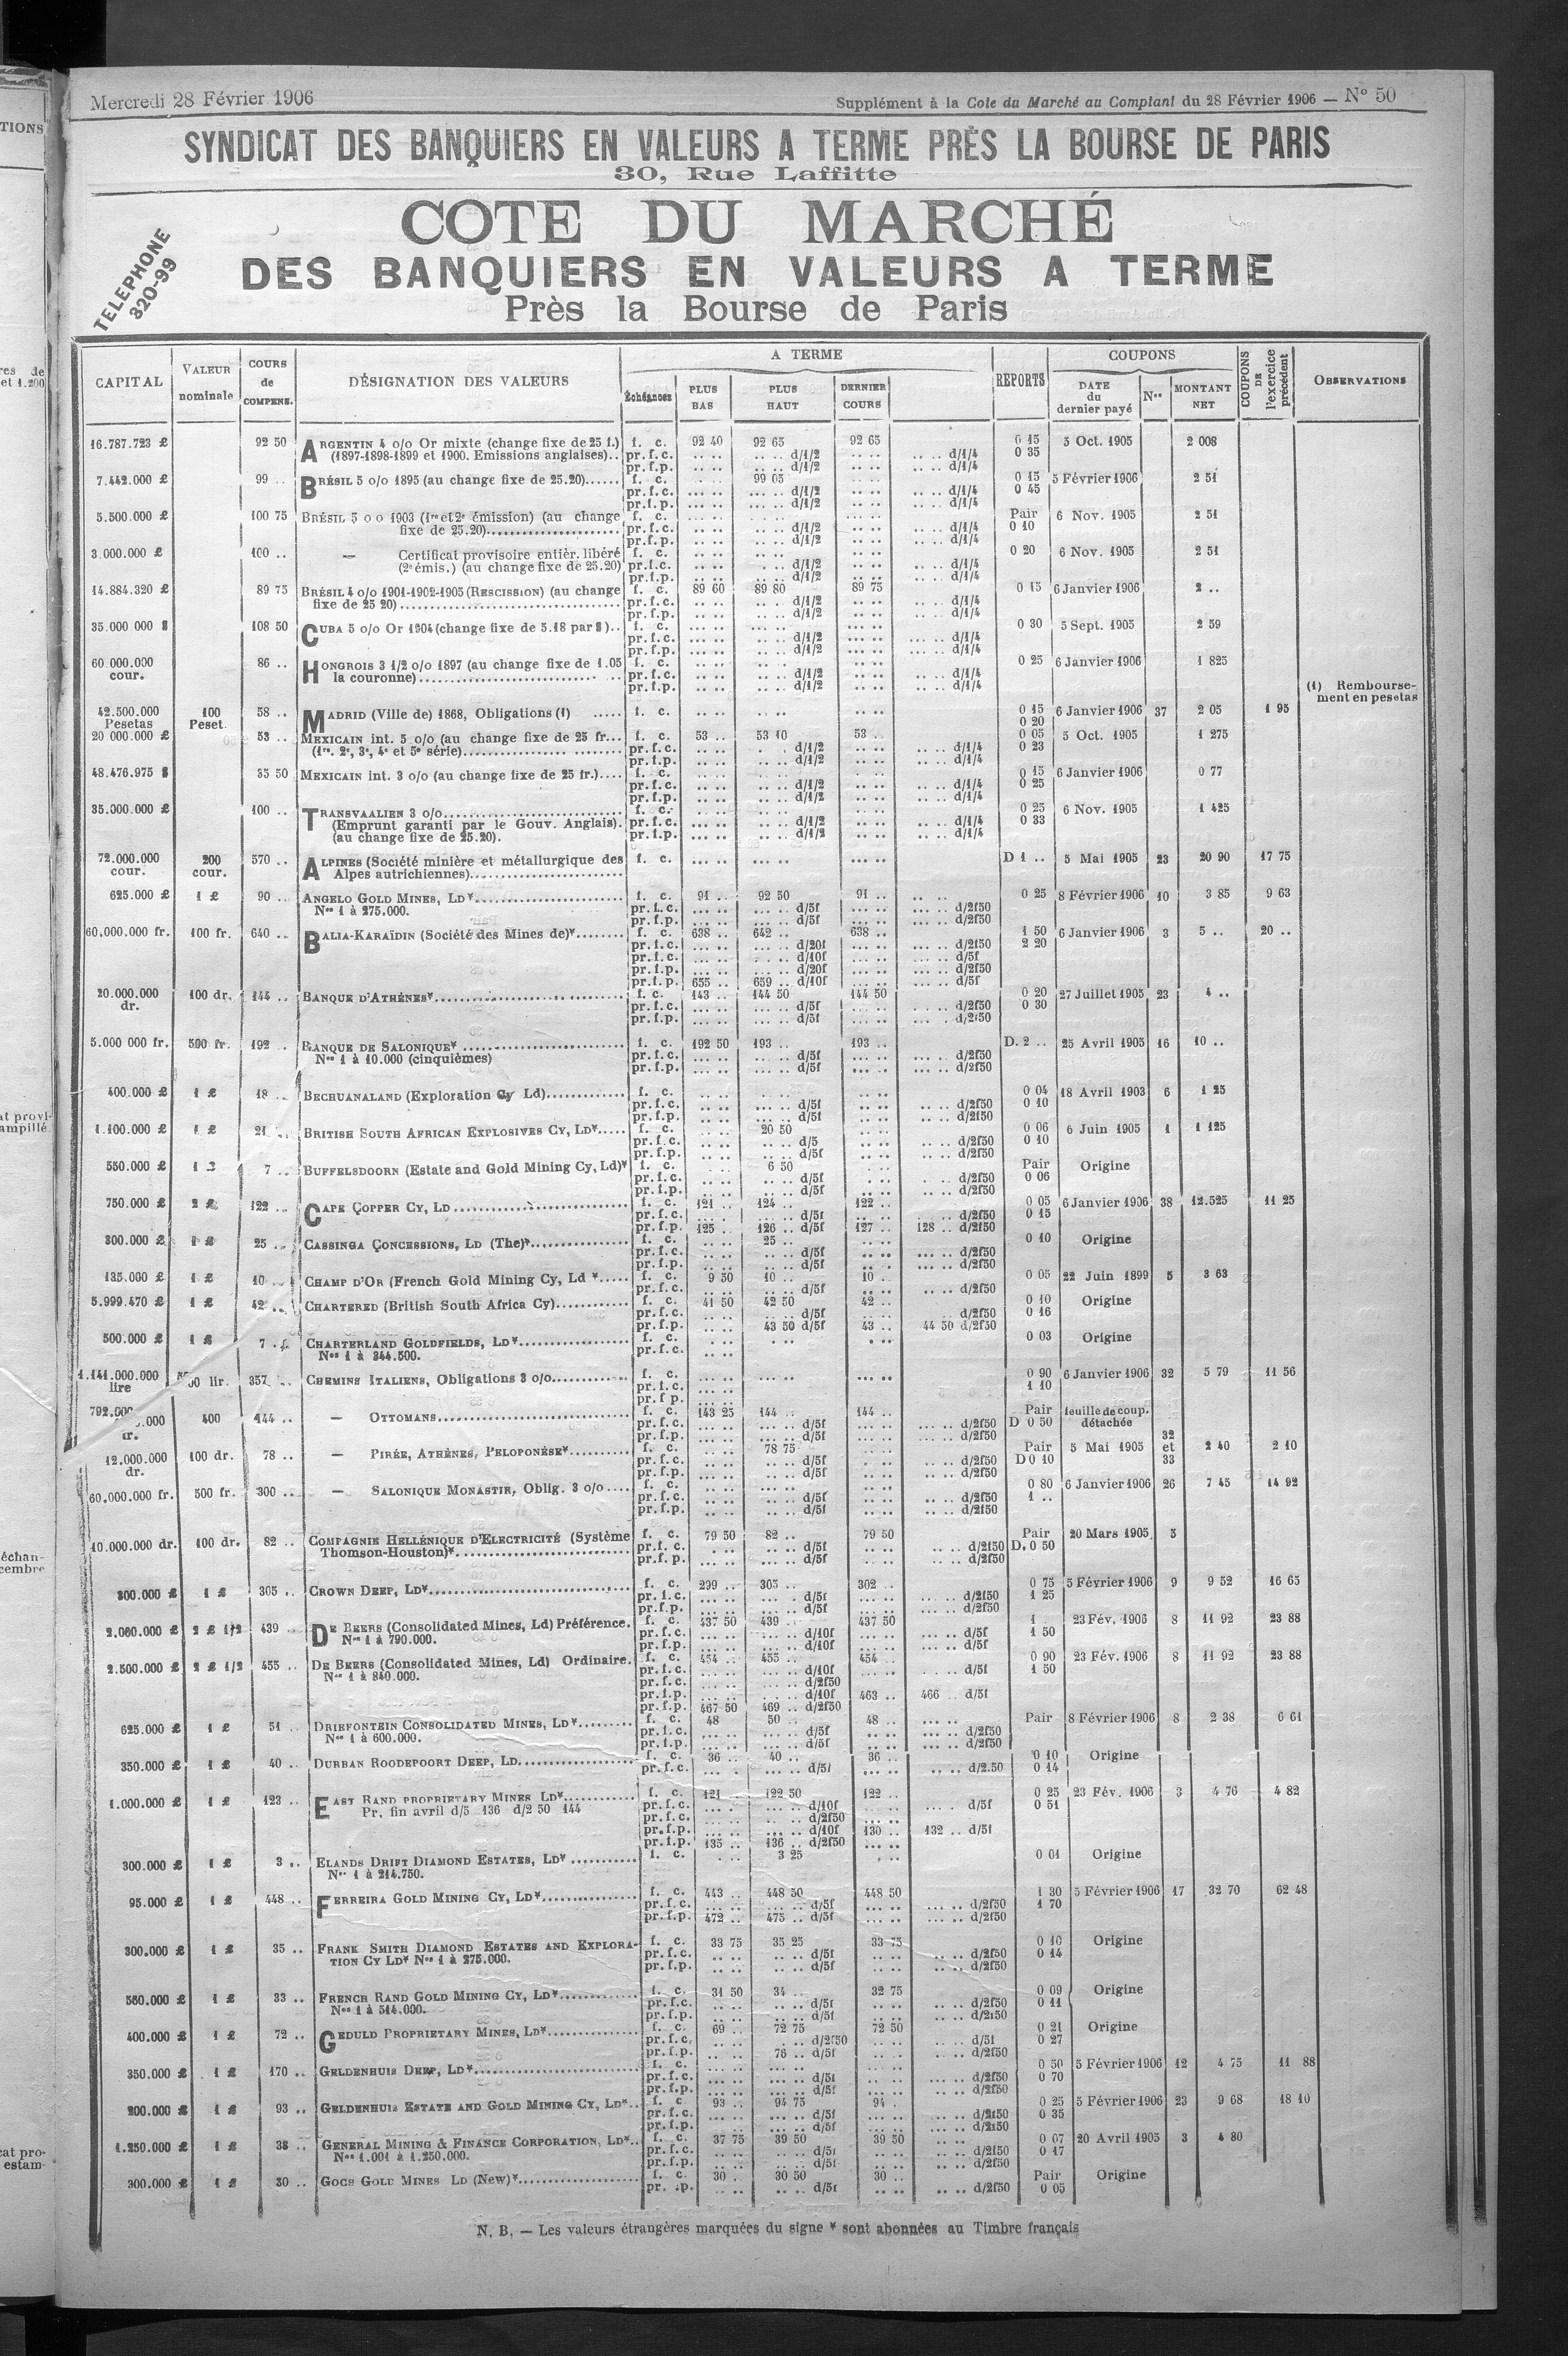 Mercredi 28 Février 1906
Supplément à la Cote du Marché au Comptant du 28 Février 1906 — N° 50
SYNDICAT DES BANQUIERS EN VALEURS A TERME PRÈS LA BOURSE DE PARIS
30, Rue Laffitte
TELEPHONE
320-99
COTE DU MARCHÉ
DES BANQUIERS EN VALEURS A TERME
Près la Bourse de Paris
CAPITAL VALEUR nominale COURS de COMPENS. DÉSIGNATION DES VALEURS A TERME Échéances PLUS BAS PLUS HAUT DERNIER COURS REPORTS COUPONS DATE du dernier payé Nos MONTANT NET COUPONS DE l'exercice précédent OBSERVATIONS
16.787.723 £ 92 50 ARGENTIN 4 o/o Or mixte (change fixe de 25 f.) f. c. 92 40 92 65 92 65 0 15 5 Oct. 1905 2 008
(1897-1898-1899 et 1900. Emissions anglaises).. pr.f.c. .. .. .. .. d/1/2 .. .. .. .. d/1/4 0 35
pr.f.p. .. .. .. .. d/1/2 .. .. .. .. d/1/4
7.442.000 £ 99 .. BRÉSIL 5 o/o 1895 (au change fixe de 25.20)...... f. c. 99 05 0 15 5 Février 1906 2 51
pr.f.c. d/1/2 d/1/4 0 45
pr.f.p. d/1/2 d/1/4
5.500.000 £ 100 75 BRÉSIL 5 o o 1903 (1re et 2e émission) (au change f. c. Pair 6 Nov. 1905 2 51
fixe de 25.20) pr.f.c. d/1/2 d/1/4 0 10
pr.f.p. d/1/2 d/1/4
3.000.000 £ 100 .. — Certificat provisoire entièr. libéré f. c. 0 20 6 Nov. 1905 2 51
(2e émis.) (au change fixe de 25.20) pr.f.c. d/1/2 d/1/4
pr.f.p. d/1/2 d/1/4
14.884.320 £ 89 75 BRÉSIL 4 o/o 1901-1902-1905 (RESCISSION) (au change f. c. 89 60 89 80 89 75 0 15 6 Janvier 1906 2 ..
fixe de 25 20) pr.f.c. d/1/2 d/1/4
pr.f.p. d/1/2 d/1/4
35.000 000 $ 108 50 CUBA 5 o/o Or 1904 (change fixe de 5.18 par $).. f. c. 0 30 5 Sept. 1905 2 59
pr.f.c. d/1/2 d/1/4
pr.f.p. d/1/2 d/1/4
60 000.000 86 .. HONGROIS 3 1/2 o/o 1897 (au change fixe de 1.05 f. c. 0 25 6 Janvier 1906 1 825
cour. la couronne) pr.f.c. d/1/2 d/1/4
pr.f.p. d/1/2 d/1/4
(1) Rembourse-
ment en pesetas
42.500.000 100 58 .. MADRID (Ville de) 1868, Obligations (1) ..... f. c. 0 15 6 Janvier 1906 37 2 05 1 95
Pesetas Peset. 0 20
20 000.000 £ 53 .. MEXICAIN int. 5 o/o (au change fixe de 25 fr... f. c. 53 .. 53 10 53 .. 0 05 5 Oct. 1905 1 275
(1re, 2e, 3e, 4e et 5e série) pr.f.c. d/1/2 d/1/4 0 23
pr.f.p. d/1/2 d/1/4
48.476.975 $ 35 50 MEXICAIN int. 3 o/o (au change fixe de 25 fr.).... f. c. 0 15 6 Janvier 1906 0 77
pr.f.c. d/1/2 d/1/4 0 25
pr.f.p. d/1/2 d/1/4
35.000.000 £ 100 .. TRANSVAALIEN 3 o/o f. c. 0 25 6 Nov. 1905 1 425
(Emprunt garanti par le Gouv. Anglais). pr.f.c. d/1/2 d/1/4 0 33
(au change fixe de 25.20). pr.f.p. d/1/2 d/1/4
72.000.000 200 570 .. ALPINES (Société minière et métallurgique des f. c. D 1 .. 5 Mai 1905 23 20 90 17 75
cour. cour. Alpes autrichiennes)
625.000 £ 1 £ 90 .. ANGELO GOLD MINES, LD* f. c. 91 .. 92 50 91 .. 0 25 8 Février 1906 10 3 85 9 63
Nos 1 à 275.000. pr.f.c. d/5f d/2f50
pr.f.p. d/5f d/2f50
60,000.000 fr. 100 fr. 640 .. BALIA-KARAÏDIN (Société des Mines de)* f. c. 638 .. 642 .. 638 .. 1 50 6 Janvier 1906 3 5 .. 20 ..
pr.f.c. d/20f d/2f50 2 20
pr.f.c. d/10f d/5f
pr.f.p. d/20f d/2f50
pr.f.p. 655 .. 659 .. d/10f d/5f
20.000.000 100 dr. 144 .. BANQUE D'ATHÈNES* f. c. 143 .. 144 50 144 50 0 20 27 Juillet 1905 23 4 ..
dr. pr.f.c. d/5f d/2f50 0 30
pr.f.p. d/5f d/2f50
5.000 000 fr. 500 fr. 192 .. BANQUE DE SALONIQUE* f. c. 192 50 193 .. 193 .. D. 2 .. 25 Avril 1905 16 10 ..
Nos 1 à 10.000 (cinquièmes) pr.f.c. d/5f d/2f50
pr.f.p. d/5f d/2f50
400.000 £ 1 £ 18 .. BECHUANALAND (Exploration Cy Ld) f. c. 0 04 18 Avril 1903 6 1 25
pr.f.c. d/5f d/2f50 0 10
pr.f.p. d/5f d/2f50
1.100.000 £ 1 £ 21 BRITISH SOUTH AFRICAN EXPLOSIVES CY, LD*..... f. c. 20 50 0 06 6 Juin 1905 1 1 125
pr.f.c. d/5 d/2f50 0 10
pr.f.p. d/5f d/2f50
550.000 £ 7 .. BUFFELSDOORN (Estate and Gold Mining Cy, Ld)* f. c. 6 50 Pair Origine
pr.f.c. d/5f d/2f50 0 06
pr.f.p. d/5f d/2f50
750.000 £ 2 £ 122 .. CAPE COPPER CY, LD f. c. 121 .. 124 .. 122 .. 0 05 6 Janvier 1906 38 12.525 11 25
pr.f.c. d/5f d/2f50 0 15
pr.f.p. 125 .. 126 .. d/5f 127 .. 128 .. d/2f50
300.000 £ 1 £ 25 .. CASSINGA CONCESSIONS, LD (The)* f. c. 25 .. 0 10 Origine
pr.f.c. d/5f d/2f50
pr.f.p. d/5f d/2f50
135.000 £ 1 £ 10 CHAMP D'OR (French Gold Mining Cy, Ld *..... f. c. 9 50 10 .. 10 .. 0 05 22 Juin 1899 5 3 63
pr.f.c. d/5f d/2f50
5.999.470 £ 1 £ 42 .. CHARTERED (British South Africa Cy) f. c. 41 50 42 50 42 .. 0 10 Origine
pr.f.c. d/5f d/2f50 0 16
pr.f.p. 43 50 d/5f 43 .. 44 50 d/2f50
500.000 £ 1 £ 7 CHARTERLAND GOLDFIELDS, LD* f. c. 0 03 Origine
Nos 1 à 344.500. pr.f.c.
1.141.000.000 lir. 357 CHEMINS ITALIENS, Obligations 3 o/o f. c. 0 90 6 Janvier 1906 32 5 79 11 56
lire pr.f.c. 1 10
pr.f.p.
792.000 400 144 .. — OTTOMANS f. c. 143 25 144 .. 144 .. Pair feuille de coup.
pr.f.c. d/5f d/2f50 D 0 50 détachée
pr.f.p. d/5f d/2f50
12.000.000 100 dr. 78 .. — PIRÉE, ATHÈNES, PÉLOPONÈSE* f. c. 78 75 Pair 5 Mai 1905 32 et 33 2 40 2 10
dr. pr.f.c. d/5f d/2f50 D 0 10
pr.f.p. d/5f d/2f50
60.000.000 fr. 500 fr. 300 .. — SALONIQUE MONASTIR, Oblig. 3 o/o .... f. c. 0 80 6 Janvier 1906 26 7 45 14 92
pr.f.c. d/5f d/2f50 1 ..
pr.f.p. d/5f d/2f50
10.000.000 dr. 100 dr. 82 .. COMPAGNIE HELLÉNIQUE D'ELECTRICITÉ (Système f. c. 79 50 82 .. 79 50 Pair 20 Mars 1905 5
Thomson-Houston)* pr.f.c. d/5f d/2f50 D. 0 50
pr.f.p. d/5f d/2f50
300.000 £ 1 £ 305 .. CROWN DEEP, LD* f. c. 299 .. 305 .. 302 .. 0 75 5 Février 1906 9 9 52 16 65
pr.f.c. d/5f d/2f50 1 25
pr.f.p. d/5f d/2f50
2.000.000 £ 2 £ 1/2 439 DE BEERS (Consolidated Mines, Ld) Préférence. f. c. 437 50 439 .. 437 50 1 23 Fév. 1906 8 11 92 23 88
Nos 1 à 790.000. pr.f.c. d/10f d/5f 1 50
pr.f.p. d/10f d/5f
2.500.000 £ 2 £ 1/2 455 .. DE BEERS (Consolidated Mines, Ld) Ordinaire. f. c. 454 .. 455 .. 454 .. 0 90 23 Fév. 1906 8 11 92 23 88
Nos 1 à 840.000. pr.f.c. d/10f d/5f 1 50
pr.f.c. d/2f50
pr.f.p. d/10f 463 .. 466 .. d/5f
pr.f.p. 467 50 469 .. d/2f50
625.000 £ 1 £ 51 .. DRIEFONTEIN CONSOLIDATED MINES, LD* f. c. 48 50 .. 48 .. Pair 8 Février 1906 8 2 38 6 61
Nos 1 à 600.000. pr.f.c. d/5f d/2f50
pr.f.p. d/5f d/2f50
350.000 £ 1 £ 40 .. DURBAN ROODEPOORT DEEP, LD f. c. 36 .. 40 .. 36 .. 0 10 Origine
pr.f.c. d/5f d/2.50 0 14
1.000.000 £ 1 £ 123 .. EAST RAND PROPRIETARY MINES LD* f. c. 121 .. 122 50 122 .. 0 25 23 Fév. 1906 3 4 76 4 82
Pr. fin avril d/5 136 d/2 50 144 pr.f.c. d/10f d/5f 0 51
pr.f.c. d/2f50
pr.f.p. d/10f 130 .. 132 .. d/5f
pr.f.p. 135 .. 136 .. d/2f50
300.000 £ 1 £ 3 .. ELANDS DRIFT DIAMOND ESTATES, LD* f. c. 3 25 0 01 Origine
Nos 1 à 214.750.
95.000 £ 1 £ 448 .. FERREIRA GOLD MINING CY, LD* f. c. 443 .. 448 50 448 50 1 30 5 Février 1906 17 32 70 62 48
pr.f.c. d/5f d/2f50 1 70
pr.f.p. 472 .. 475 .. d/5f d/2f50
300.000 £ 1 £ 35 .. FRANK SMITH DIAMOND ESTATES AND EXPLORA- f. c. 33 75 35 25 33 75 0 10 Origine
TION CY LD* Nos 1 à 275.000. pr.f.c. d/5f d/2f50 0 14
pr.f.p. d/5f d/2f50
560.000 £ 1 £ 33 .. FRENCH RAND GOLD MINING CY, LD* f. c. 31 50 34 .. 32 75 0 09 Origine
Nos 1 à 514.000. pr.f.c. d/5f d/2f50 0 11
pr.f.p. d/5f d/2f50
400.000 £ 1 £ 72 .. GEDULD PROPRIETARY MINES, LD* f. c. 69 .. 72 75 72 50 0 21 Origine
pr.f.c. d/2f50 d/5f 0 27
pr.f.p. 76 .. d/5f d/2f50
350.000 £ 1 £ 170 .. GELDENHUIS DEEP, LD* f. c. 0 50 5 Février 1906 12 4 75 11 88
pr.f.c. d/5f d/2f50 0 70
pr.f.p. d/5f d/2f50
200.000 £ 1 £ 93 .. GELDENHUIS ESTATE AND GOLD MINING CY, LD*.. f. c. 93 .. 94 75 94 . 0 25 5 Février 1906 23 9 68 18 10
pr.f.c. d/5f d/2f50 0 35
pr.f.p. d/5f d/2f50
1.250.000 £ 1 £ 38 .. GENERAL MINING & FINANCE CORPORATION, LD*.. f. c. 37 75 39 50 39 50 0 07 20 Avril 1905 3 4 80
Nos 1.001 à 1.250.000. pr.f.c. d/5f d/2f50 0 17
pr.f.p. d/5f d/2f50
300.000 £ 1 £ 30 .. GOCH GOLD MINES LD (New)* f. c. 30 .. 30 50 30 .. Pair Origine
d/5f d/2f50 0 05
N. B. — Les valeurs étrangères marquées du signe * sont abonnées au Timbre français